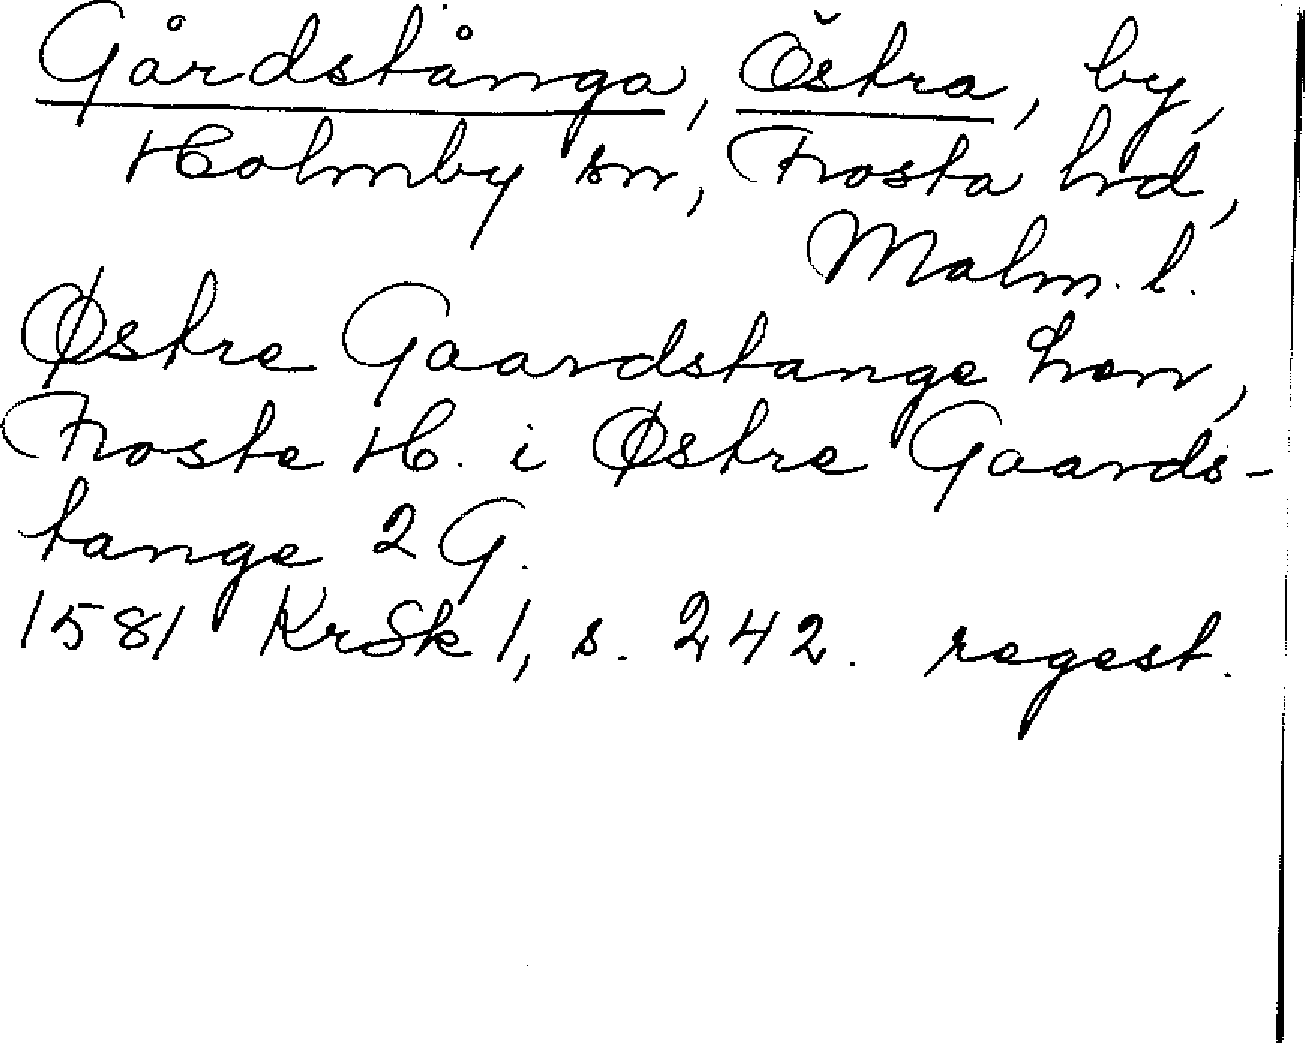 Gårdstånga, Östra, by,
Holmby sn, Frosta hrd,
Malm. l.
Østre Gaardstange Len,
Froste H. i Østre Gaards-
tange 2 G.
1581 KrSk 1, s. 242. regest.